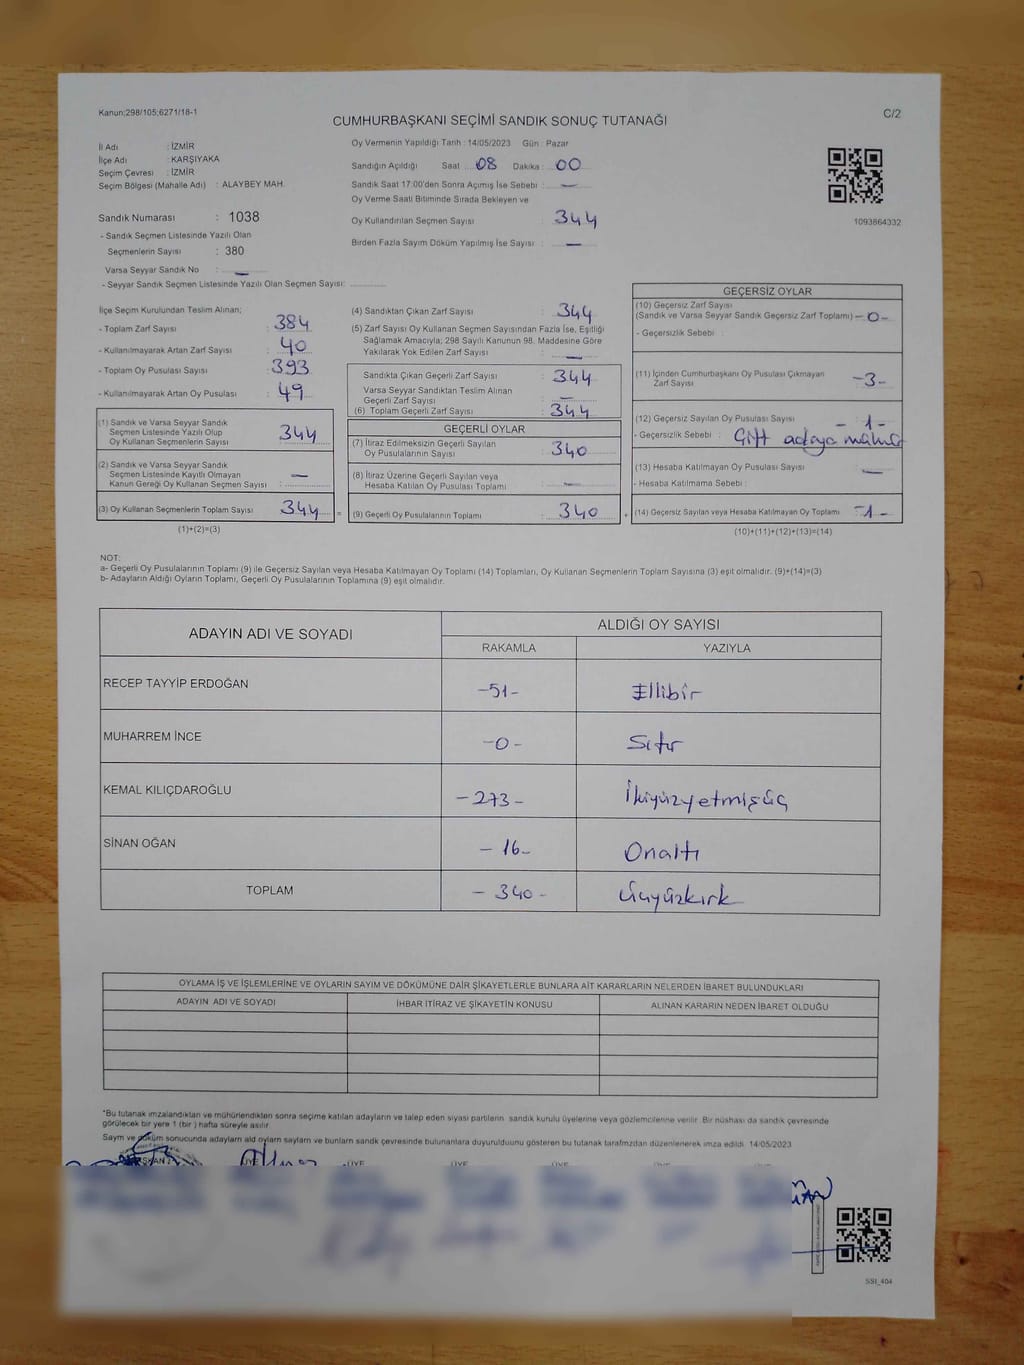 Kanun;298/105;6271/18-1
C/2
CUMHURBAŞKANI SEÇİMİ SANDIK SONUÇ TUTANAĞI
İl Adı : İZMİR
İlçe Adı : KARŞIYAKA
Seçim Çevresi : İZMİR
Seçim Bölgesi (Mahalle Adı) : ALAYBEY MAH.
Sandık Numarası : 1038
- Sandık Seçmen Listesinde Yazılı Olan
Seçmenlerin Sayısı : 380
Varsa Seyyar Sandık No : —
- Seyyar Sandık Seçmen Listesinde Yazılı Olan Seçmen Sayısı:
Oy Vermenin Yapıldığı Tarih : 14/05/2023 Gün : Pazar
Sandığın Açıldığı Saat : 08 Dakika : 00
Sandık Saat 17:00'den Sonra Açımış İse Sebebi : —
Oy Verme Saati Bitiminde Sırada Bekleyen ve
Oy Kullandırılan Seçmen Sayısı : 344
Birden Fazla Sayım Döküm Yapılmış İse Sayısı : —
1093864332
İlçe Seçim Kurulundan Teslim Alınan;
- Toplam Zarf Sayısı : 384
- Kullanılmayarak Artan Zarf Sayısı : 40
- Toplam Oy Pusulası Sayısı : 393
- Kullanılmayarak Artan Oy Pusulası : 49
(1) Sandık ve Varsa Seyyar Sandık
Seçmen Listesinde Yazılı Olup
Oy Kullanan Seçmenlerin Sayısı : 344
(2) Sandık ve Varsa Seyyar Sandık
Seçmen Listesinde Kayıtlı Olmayan
Kanun Gereği Oy Kullanan Seçmen Sayısı : —
(3) Oy Kullanan Seçmenlerin Toplam Sayısı : 344 =
(1)+(2)=(3)
(4) Sandıktan Çıkan Zarf Sayısı : 344
(5) Zarf Sayısı Oy Kullanan Seçmen Sayısından Fazla İse, Eşitliği
Sağlamak Amacıyla; 298 Sayılı Kanunun 98. Maddesine Göre
Yakılarak Yok Edilen Zarf Sayısı : —
Sandıkta Çıkan Geçerli Zarf Sayısı : 344
Varsa Seyyar Sandıktan Teslim Alınan
Geçerli Zarf Sayısı : —
(6) Toplam Geçerli Zarf Sayısı : 344
GEÇERLİ OYLAR
(7) İtiraz Edilmeksizin Geçerli Sayılan
Oy Pusulalarının Sayısı : 340
(8) İtiraz Üzerine Geçerli Sayılan veya
Hesaba Katılan Oy Pusulası Toplamı : —
(9) Geçerli Oy Pusulalarının Toplamı : 340 +
GEÇERSİZ OYLAR
(10) Geçersiz Zarf Sayısı
(Sandık ve Varsa Seyyar Sandık Geçersiz Zarf Toplamı) -0-
- Geçersizlik Sebebi :
(11) İçinden Cumhurbaşkanı Oy Pusulası Çıkmayan
Zarf Sayısı -3-
(12) Geçersiz Sayılan Oy Pusulası Sayısı -1-
- Geçersizlik Sebebi : Çift adaya mühür
(13) Hesaba Katılmayan Oy Pusulası Sayısı —
- Hesaba Katılmama Sebebi :
(14) Geçersiz Sayılan veya Hesaba Katılmayan Oy Toplamı -1-
(10)+(11)+(12)+(13)=(14)
NOT:
a- Geçerli Oy Pusulalarının Toplamı (9) ile Geçersiz Sayılan veya Hesaba Katılmayan Oy Toplamı (14) Toplamları, Oy Kullanan Seçmenlerin Toplam Sayısına (3) eşit olmalıdır. (9)+(14)=(3)
b- Adayların Aldığı Oyların Toplamı, Geçerli Oy Pusulalarının Toplamına (9) eşit olmalıdır.
ADAYIN ADI VE SOYADI
ALDIĞI OY SAYISI
RAKAMLA YAZIYLA
RECEP TAYYİP ERDOĞAN -51- Ellibir
MUHARREM İNCE -0- Sıfır
KEMAL KILIÇDAROĞLU -273- İkiyüzyetmişüç
SİNAN OĞAN -16- Onaltı
TOPLAM -340- Üçyüzkırk
OYLAMA İŞ VE İŞLEMLERİNE VE OYLARIN SAYIM VE DÖKÜMÜNE DAİR ŞİKAYETLERLE BUNLARA AİT KARARLARIN NELERDEN İBARET BULUNDUKLARI
ADAYIN ADI VE SOYADI İHBAR İTİRAZ VE ŞİKAYETİN KONUSU ALINAN KARARIN NEDEN İBARET OLDUĞU
*Bu tutanak imzalandıktan ve mühürlendikten sonra seçime katılan adayların ve talep eden siyasi partilerin sandık kurulu üyelerine veya gözlemcilerine verilir. Bir nüshası da sandık çevresinde
görülecek bir yere 1 (bir) hafta süreyle asılır.
Sayım ve döküm sonucunda adayların ald oyların sayların ve bunların sandık çevresinde bulunanlara duyurulduunu gösteren bu tutanak tarafmzdan düzenlenerek imza edildi. 14/05/2023
ÜYE ÜYE ÜYE ÜYE
SSI_404